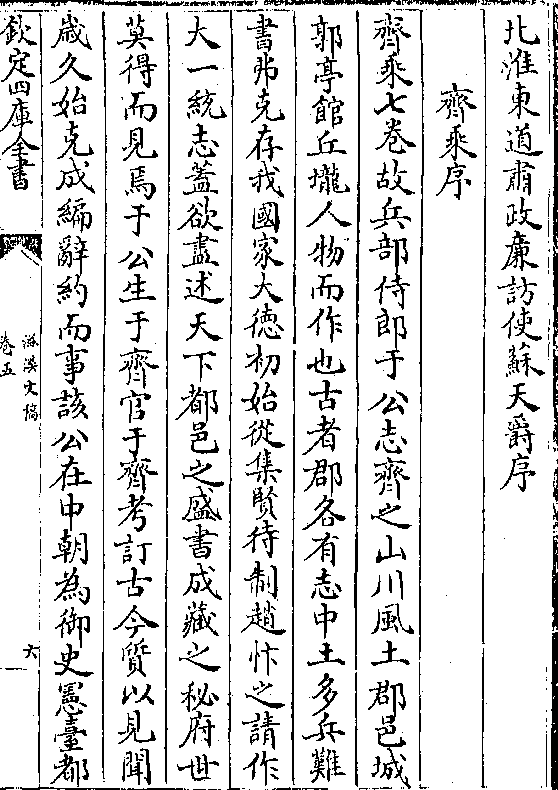 北淮東道肅政廉訪使蘇天爵序
齊乗序
齊乗七卷故兵部侍郎于公志齊之山川風土郡邑城
郭亭館丘壠人物而作也古者郡各有志中土多兵難
書弗克存我國家大徳初始從集賢待制趙忭之請作
大一統志蓋欲盡述天下都邑之盛書成藏之秘府世
莫得而見焉于公生于齊官于齊考訂古今質以見聞
嵗久始克成編辭約而事該公在中朝為御史憲臺都
欽定四庫全書
滋溪文稿
卷五
六